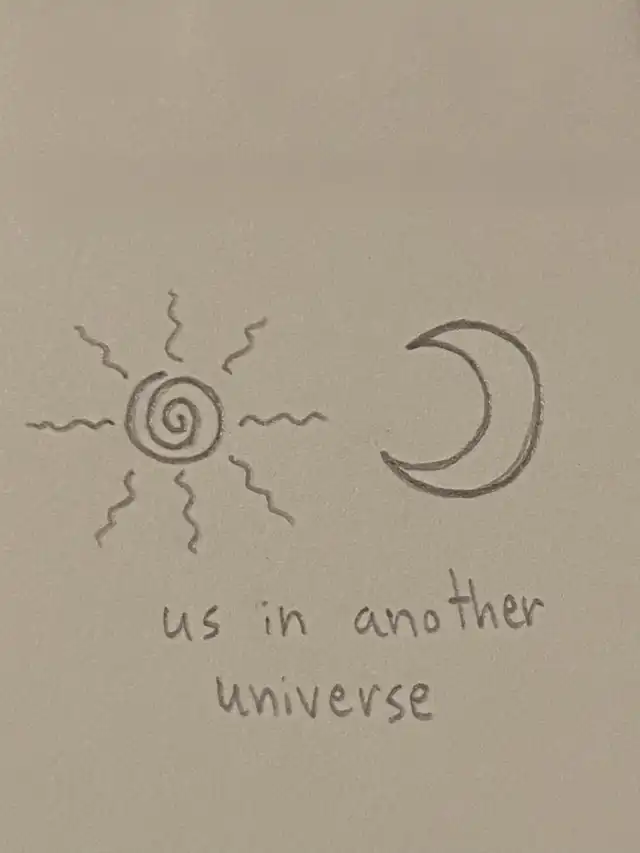 us in another
universe